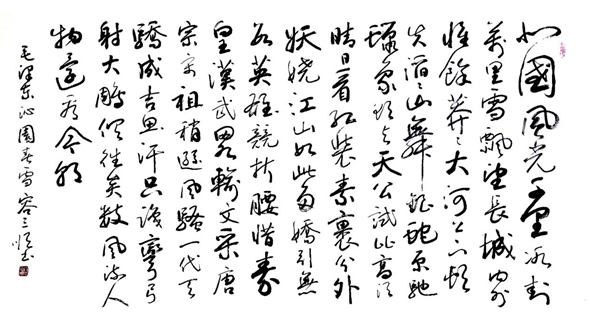 北國風光千里冰封
萬里雪飄望長城內外
惟餘莽々大河上下頓
失滔々山舞銀蛇原馳
蠟象欲与天公試比高須
晴日看紅裝素裹分外
妖嬈江山如此多嬌引無
數英雄競折腰惜秦
皇漢武略輸文采唐
宗宋祖稍遜風騷一代天
驕成吉思汗只識彎弓
射大雕俱往矣數風流人
物還看今朝
毛澤東沁園春雪 書